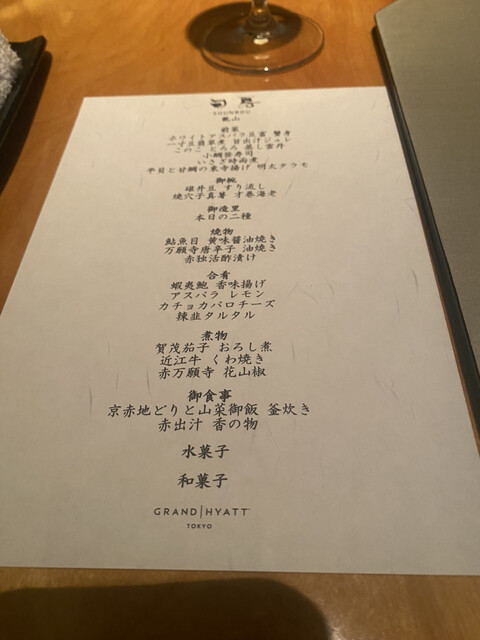 旬房
SHUNBOU
葱山
前菜
ホワイトアスパラ豆富 蟹身
一寸豆翡翠煮 旨出汁ジュレ
このこ とろろ 蒸し雲丹
小鯛笹寿司
いさき時雨煮
平目と甘鯛の東寺揚げ 明太タラモ
御椀
碓井豆 すり流し
焼穴子真薯 才巻海老
御造里
本日の二種
焼物
鮎魚目 黄味醤油焼き
万願寺唐辛子 油焼き
赤独活酢漬け
合肴
蝦夷鮑 香味揚げ
アスパラ レモン
カチョカバロチーズ
辣韭タルタル
煮物
賀茂茄子 おろし煮
近江牛 くわ焼き
赤万願寺 花山椒
御食事
京赤地どりと山菜御飯 釜炊き
赤出汁 香の物
水菓子
和菓子
GRAND HYATT
TOKYO